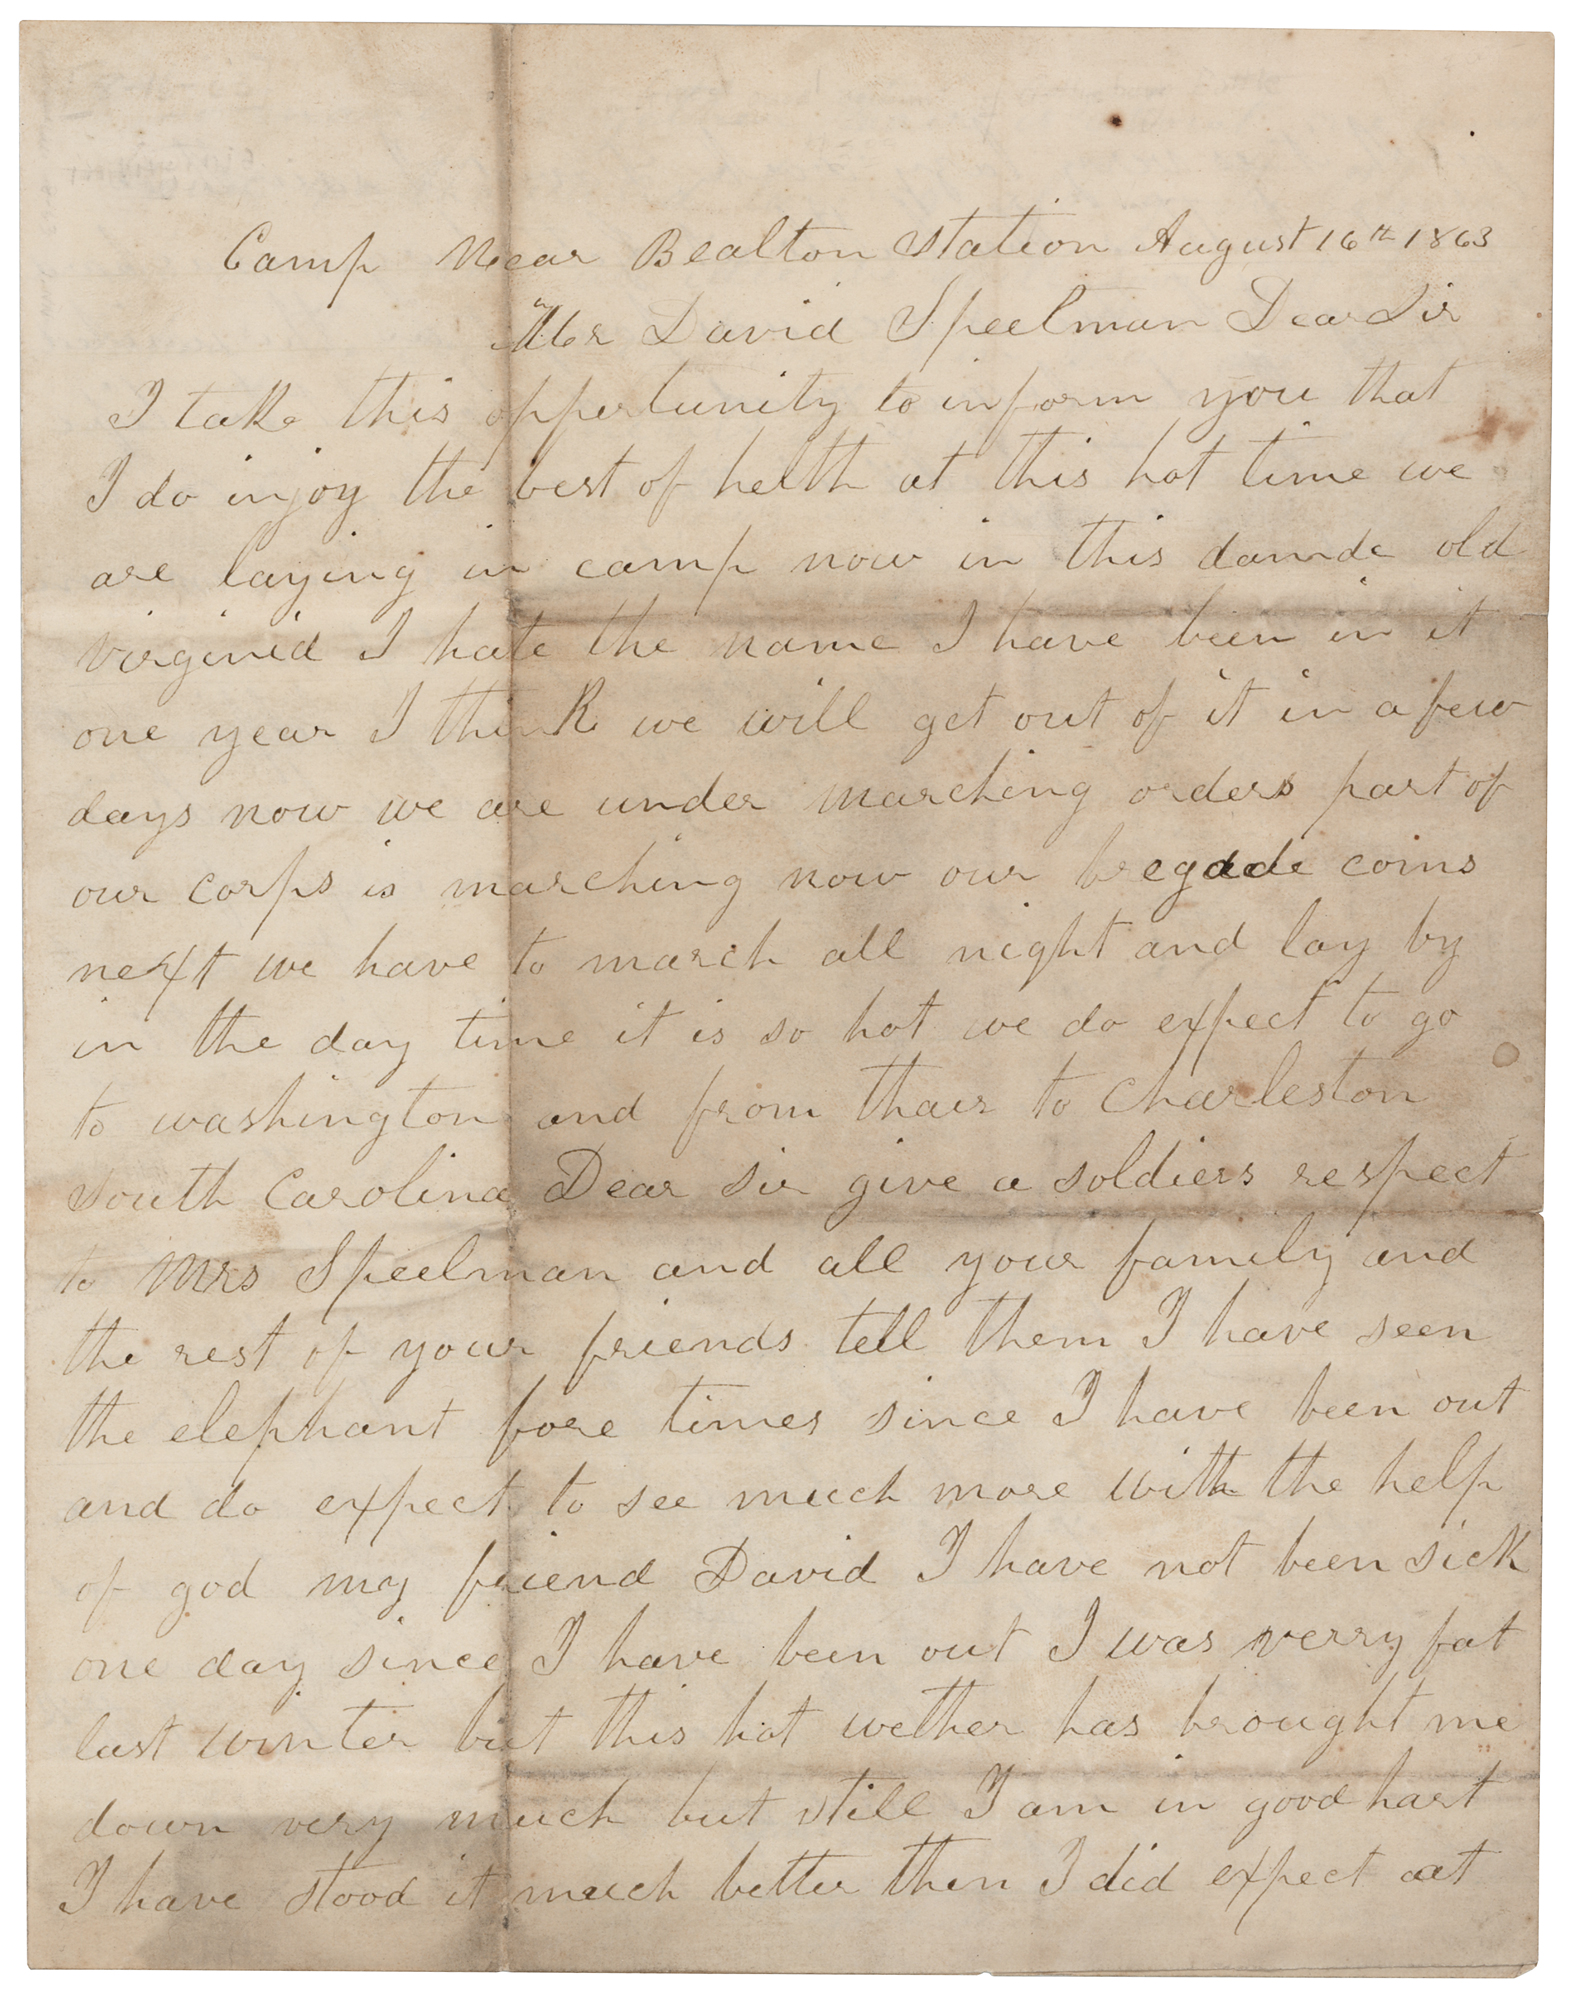 Camp Near Bealton Station August 16th 1863
Mr David Speelman Dear Sir
I take this oppertunity to inform you that
I do injoy the best of helth at this hot time we
are laying in camp now in this damde old
virginia I hate the name I have been in it
one year I think we will get out of it in a few
days now we are under marching orders part of
our corps is marching now our bregade coms
next we have to march all night and lay by
in the day time it is so hot we do expect to go
to washington and from thair to Charleston
South Carolina Dear sir give a soldiers respect
to Mrs Speelman and all your family and
the rest of your friends tell them I have seen
the elephant fore times since I have been out
and do expect to see much more with the help
of god my friend David I have not been sick
one day since I have been out I was verry fat
last winter but this hot wether has brought me
down very much but still I am in good hart
I have stood it much better then I did expect at